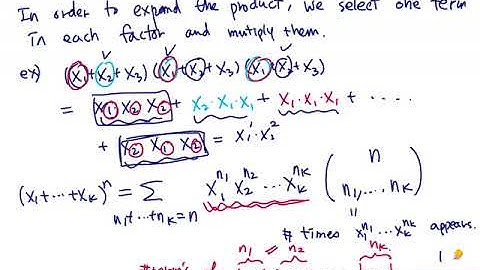 In order to expand the product, we select one term
in each factor and mutiply them.
ex) (x₁+x₂+x₃) (x₁+x₂+x₃) (x₁+x₂+x₃)
= x₁·x₂ x₂ + x₂·x₁·x₁ + x₁·x₁·x₁ + ‥‥
+ x₂ x₁ x₂ = x₁¹·x₂²
(x₁+⋯+x_k)ⁿ = ∑ x₁^n₁ x₂^n₂ ⋯ x_k^n_k ( n
n₁+⋯+n_k=n n₁,⋯,n_k )
"
# times x₁^n₁⋯x_k^n_k appears.
n₁ = n₂ n_k
of